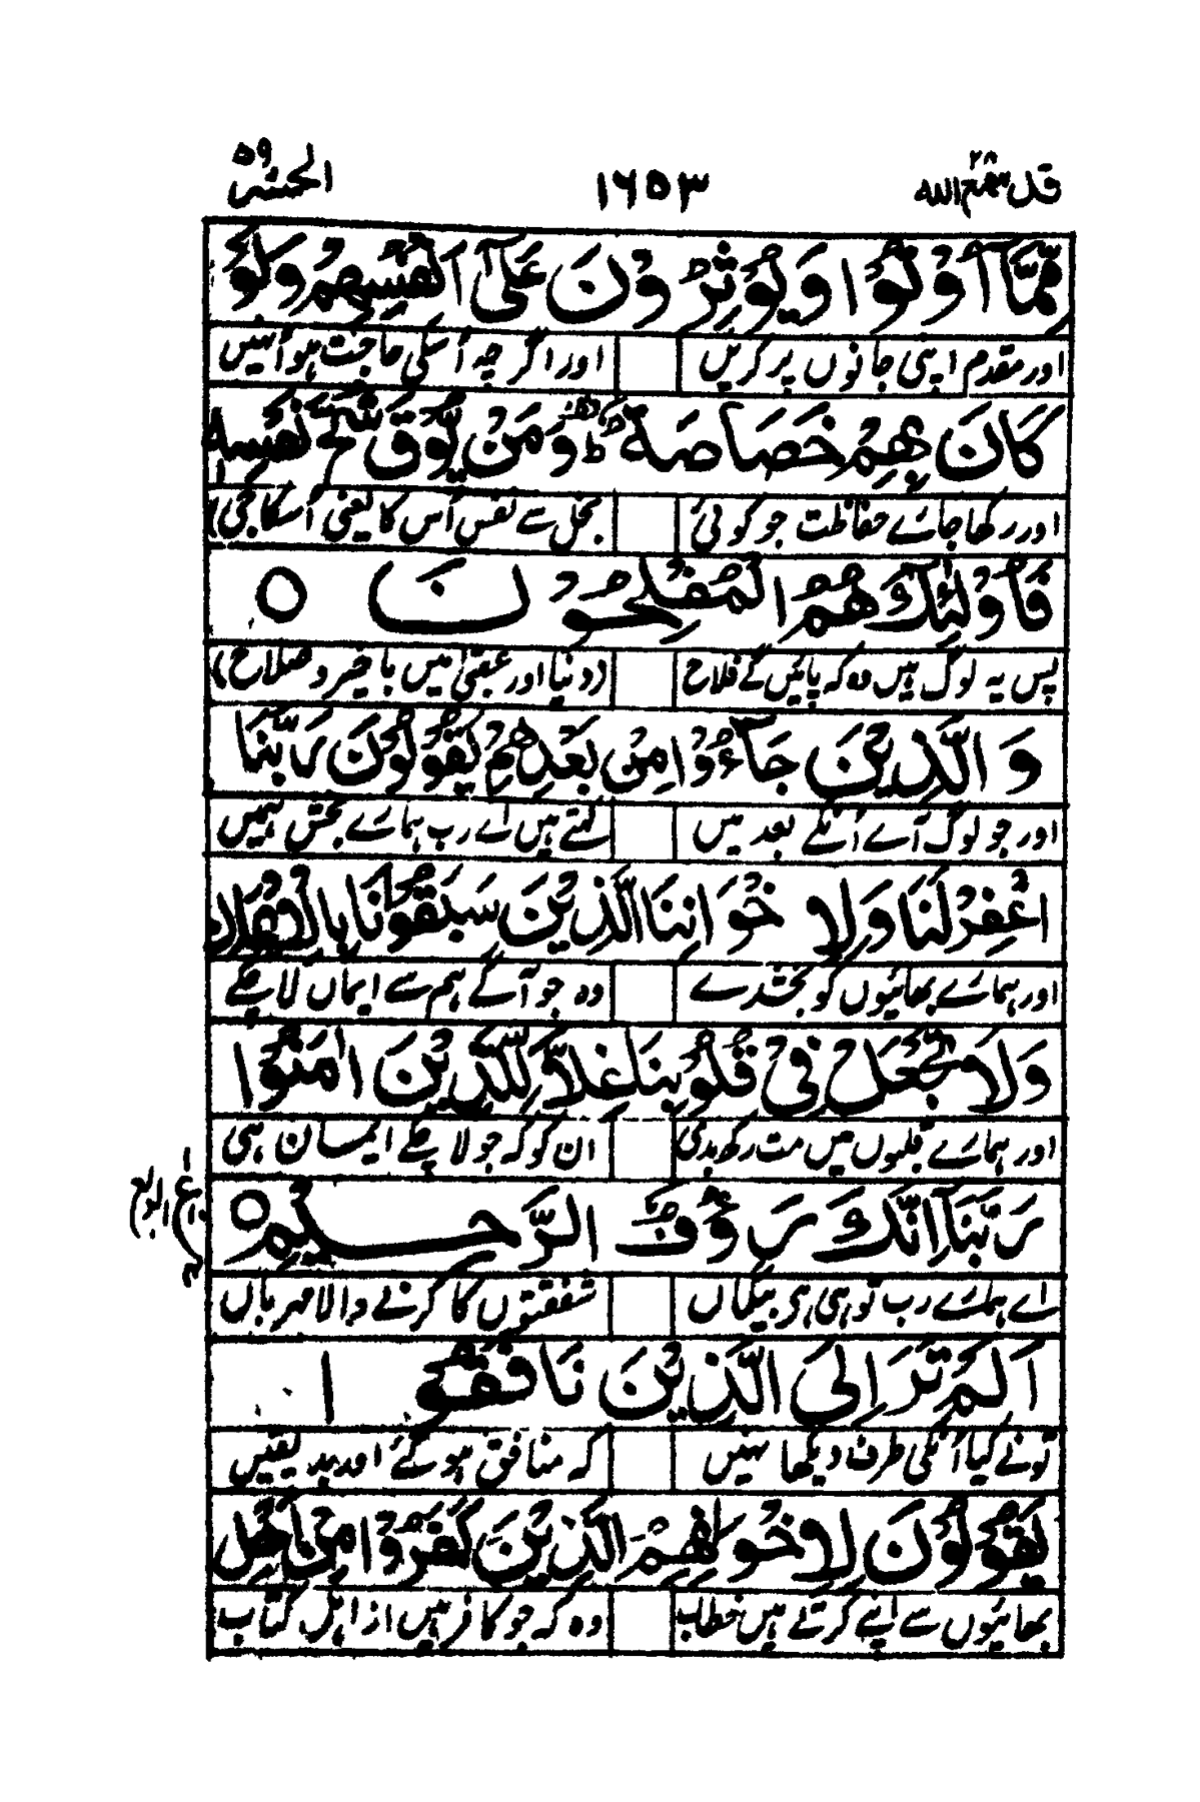 قد سمع الله ۲۸ ۱۶۵۳ الحشر ۵۹
مِّمَّآ اُوْتُوْا وَيُؤْثِرُوْنَ عَلٰٓى اَنْفُسِهِمْ وَلَوْ
اور مقدم اپنی جانوں پر کریں اور اگر چہ اُسکی حاجت ہو اُنہیں
كَانَ بِهِمْ خَصَاصَةٌ ؕ وَمَنْ يُّوْقَ شُحَّ نَفْسِهٖ
اور رکھا جائے حفاظت جو کوئی بخل سے نفس اُس کا یعنی اُسکا جی)
فَاُولٰٓئِكَ هُمُ الْمُفْلِحُوْنَ ○
پس یہ لوگ ہیں وہ کہ پائیں گے فلاح (دنیا اور عقبیٰ میں با خیر و صلاح)
وَالَّذِيْنَ جَآءُوْا مِنْۢ بَعْدِهِمْ يَقُوْلُوْنَ رَبَّنَا
اور جو لوگ آے اُنکے بعد میں کہتے ہیں اے رب ہمارے بخش ہمیں
اغْفِرْ لَنَا وَلِاِخْوَانِنَا الَّذِيْنَ سَبَقُوْنَا بِالْاِيْمَانِ
اور ہمارے بھائیوں کو بخشدے وہ جو آگے ہم سے ایماں لا چکے
وَلَا تَجْعَلْ فِىْ قُلُوْبِنَا غِلًّا لِّلَّذِيْنَ اٰمَنُوْا
اور ہمارے قلبوں میں مت رکھ بدی ان کو کہ جو لا چکے ایمان ہی
رَبَّنَآ اِنَّكَ رَءُوْفٌ الرَّحِيْمٌ ○
اے ہمارے رب تو ہی ہر بیگماں شفقتوں کا کرنے والا مہرباں
اَلَمْ تَرَ اِلَى الَّذِيْنَ نَافَقُوْا
تونے کیا اُنکی طرف دیکھا نہیں کہ منافق ہو گئے اور بد یقیں
يَقُوْلُوْنَ لِاِخْوَانِهِمُ الَّذِيْنَ كَفَرُوْا مِنْ اَهْلِ
بھائیوں سے اپنے کرتے ہیں خطاب وہ کہ جو کافر ہیں از اہل کتاب